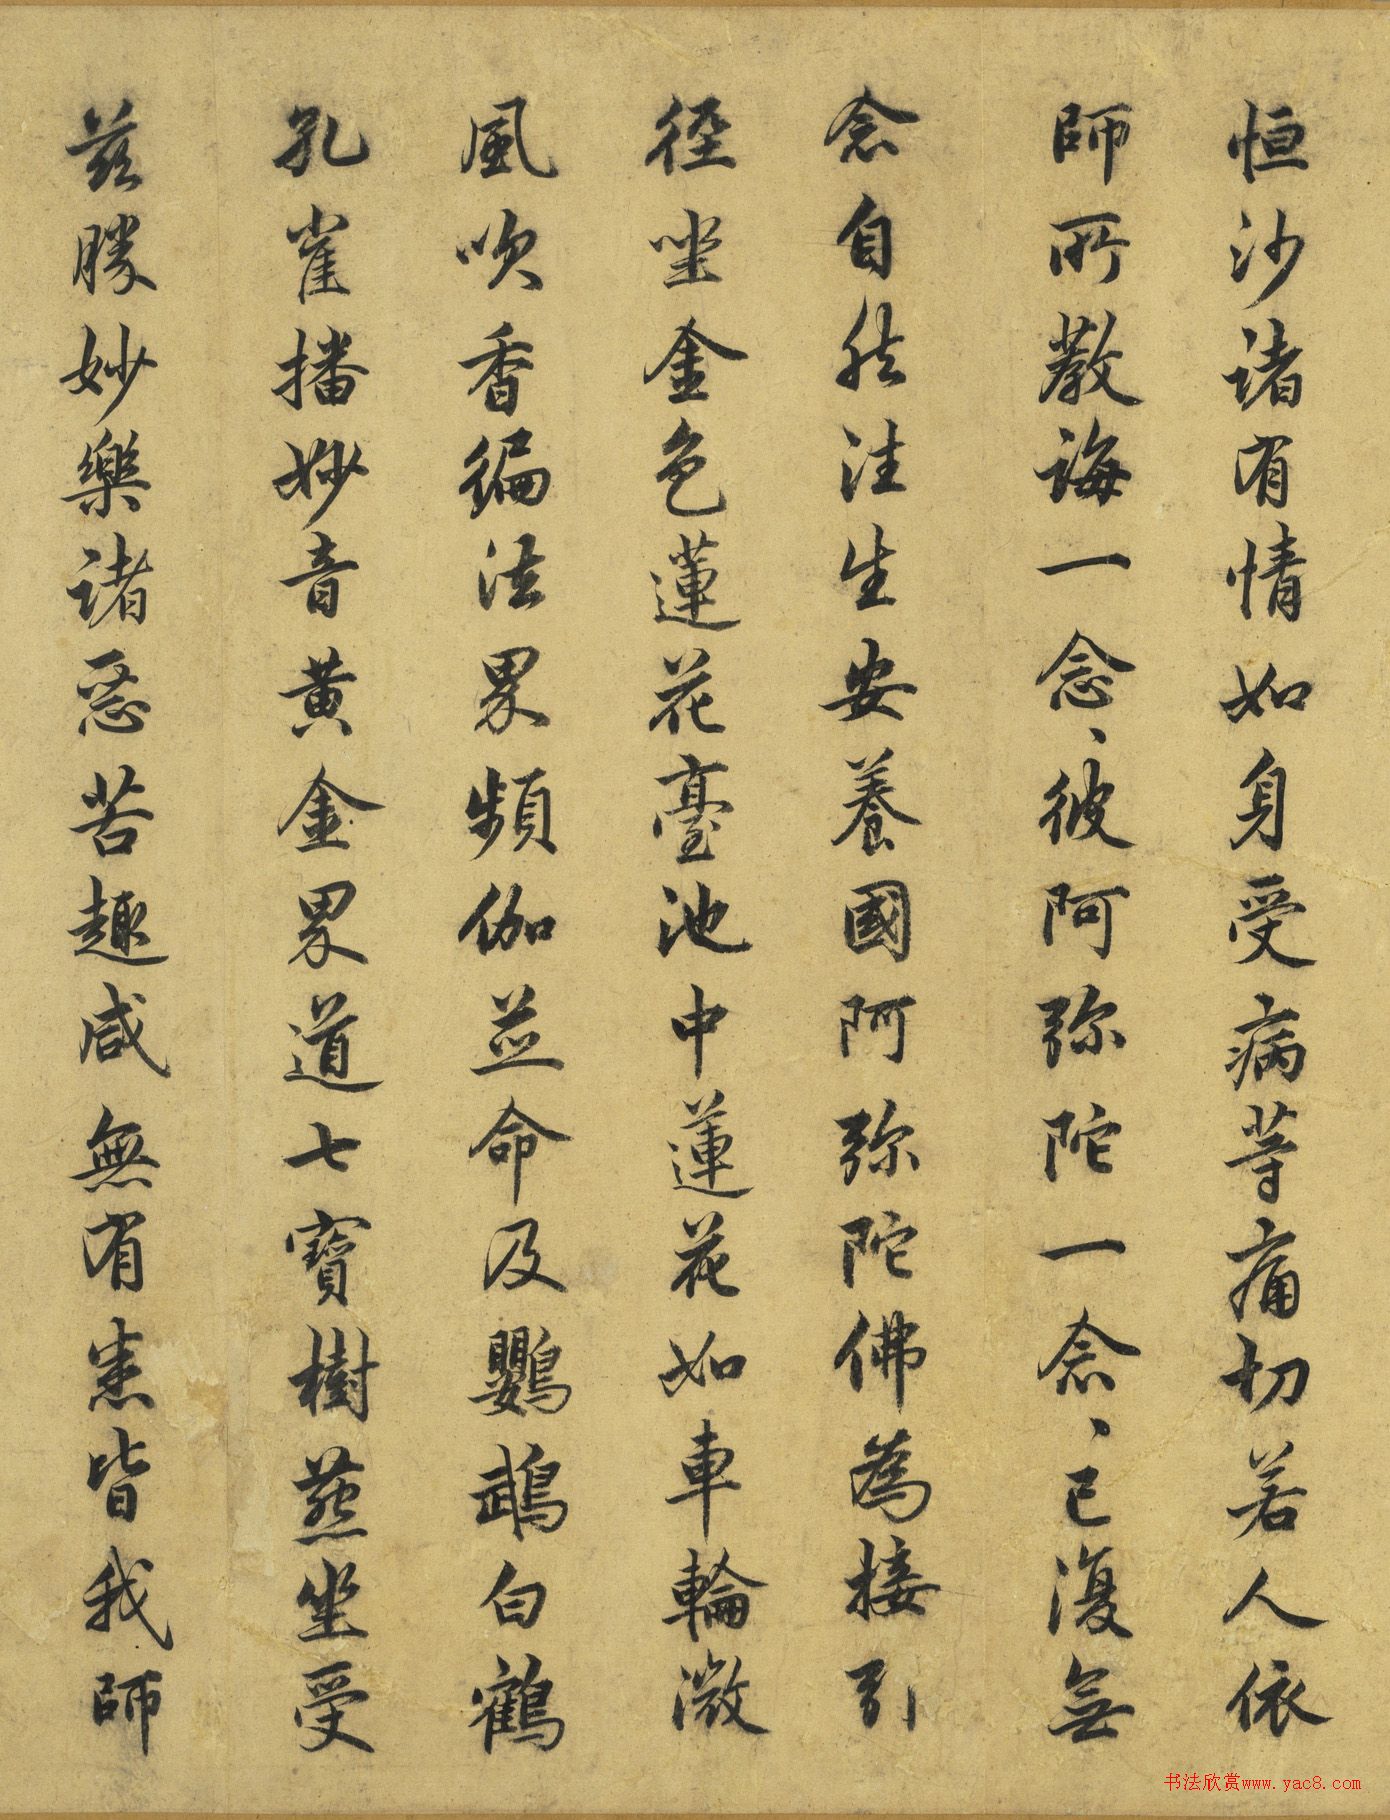 恒沙諸有情如身受病苦痛切若人依
師所教誨一念、彼阿弥陀一念、已復無
念自然往生安養國阿弥陀佛為接引
徑坐金色蓮花臺池中蓮花如車輪微
風吹香徧法界頻伽並命及鸚鵡白鶴
孔雀播妙音黃金界道七寶樹燕坐受
茲勝妙樂諸惡苦趣咸無有悉皆我師
书法欣赏www.yac8.com